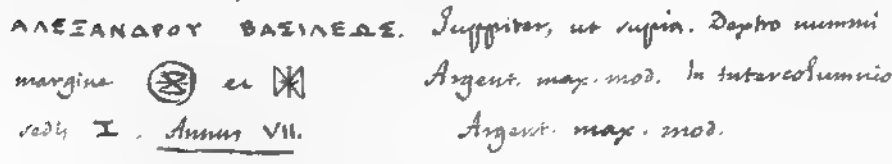 ΑΛΕΞΑΝΔΡΟΥ ΒΑΣΙΛΕΩΣ. Juppiter, ut supra. Dextro nummi
margine et Argent. max. mod. In intercolumnio
sedis I. Annus VII. Argent. max. mod.